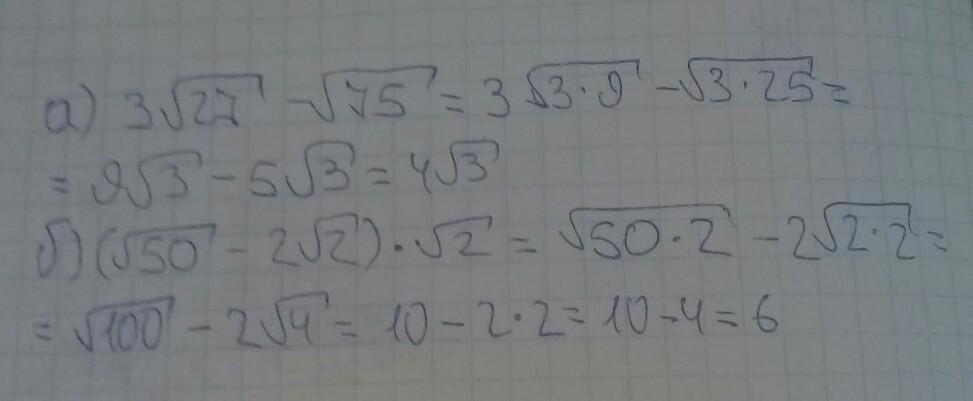 а) 3√27 - √75 = 3√3·9 - √3·25 =
= 9√3 - 5√3 = 4√3
б) (√50 - 2√2)·√2 = √50·2 - 2√2·2 =
= √100 - 2√4 = 10 - 2·2 = 10 - 4 = 6